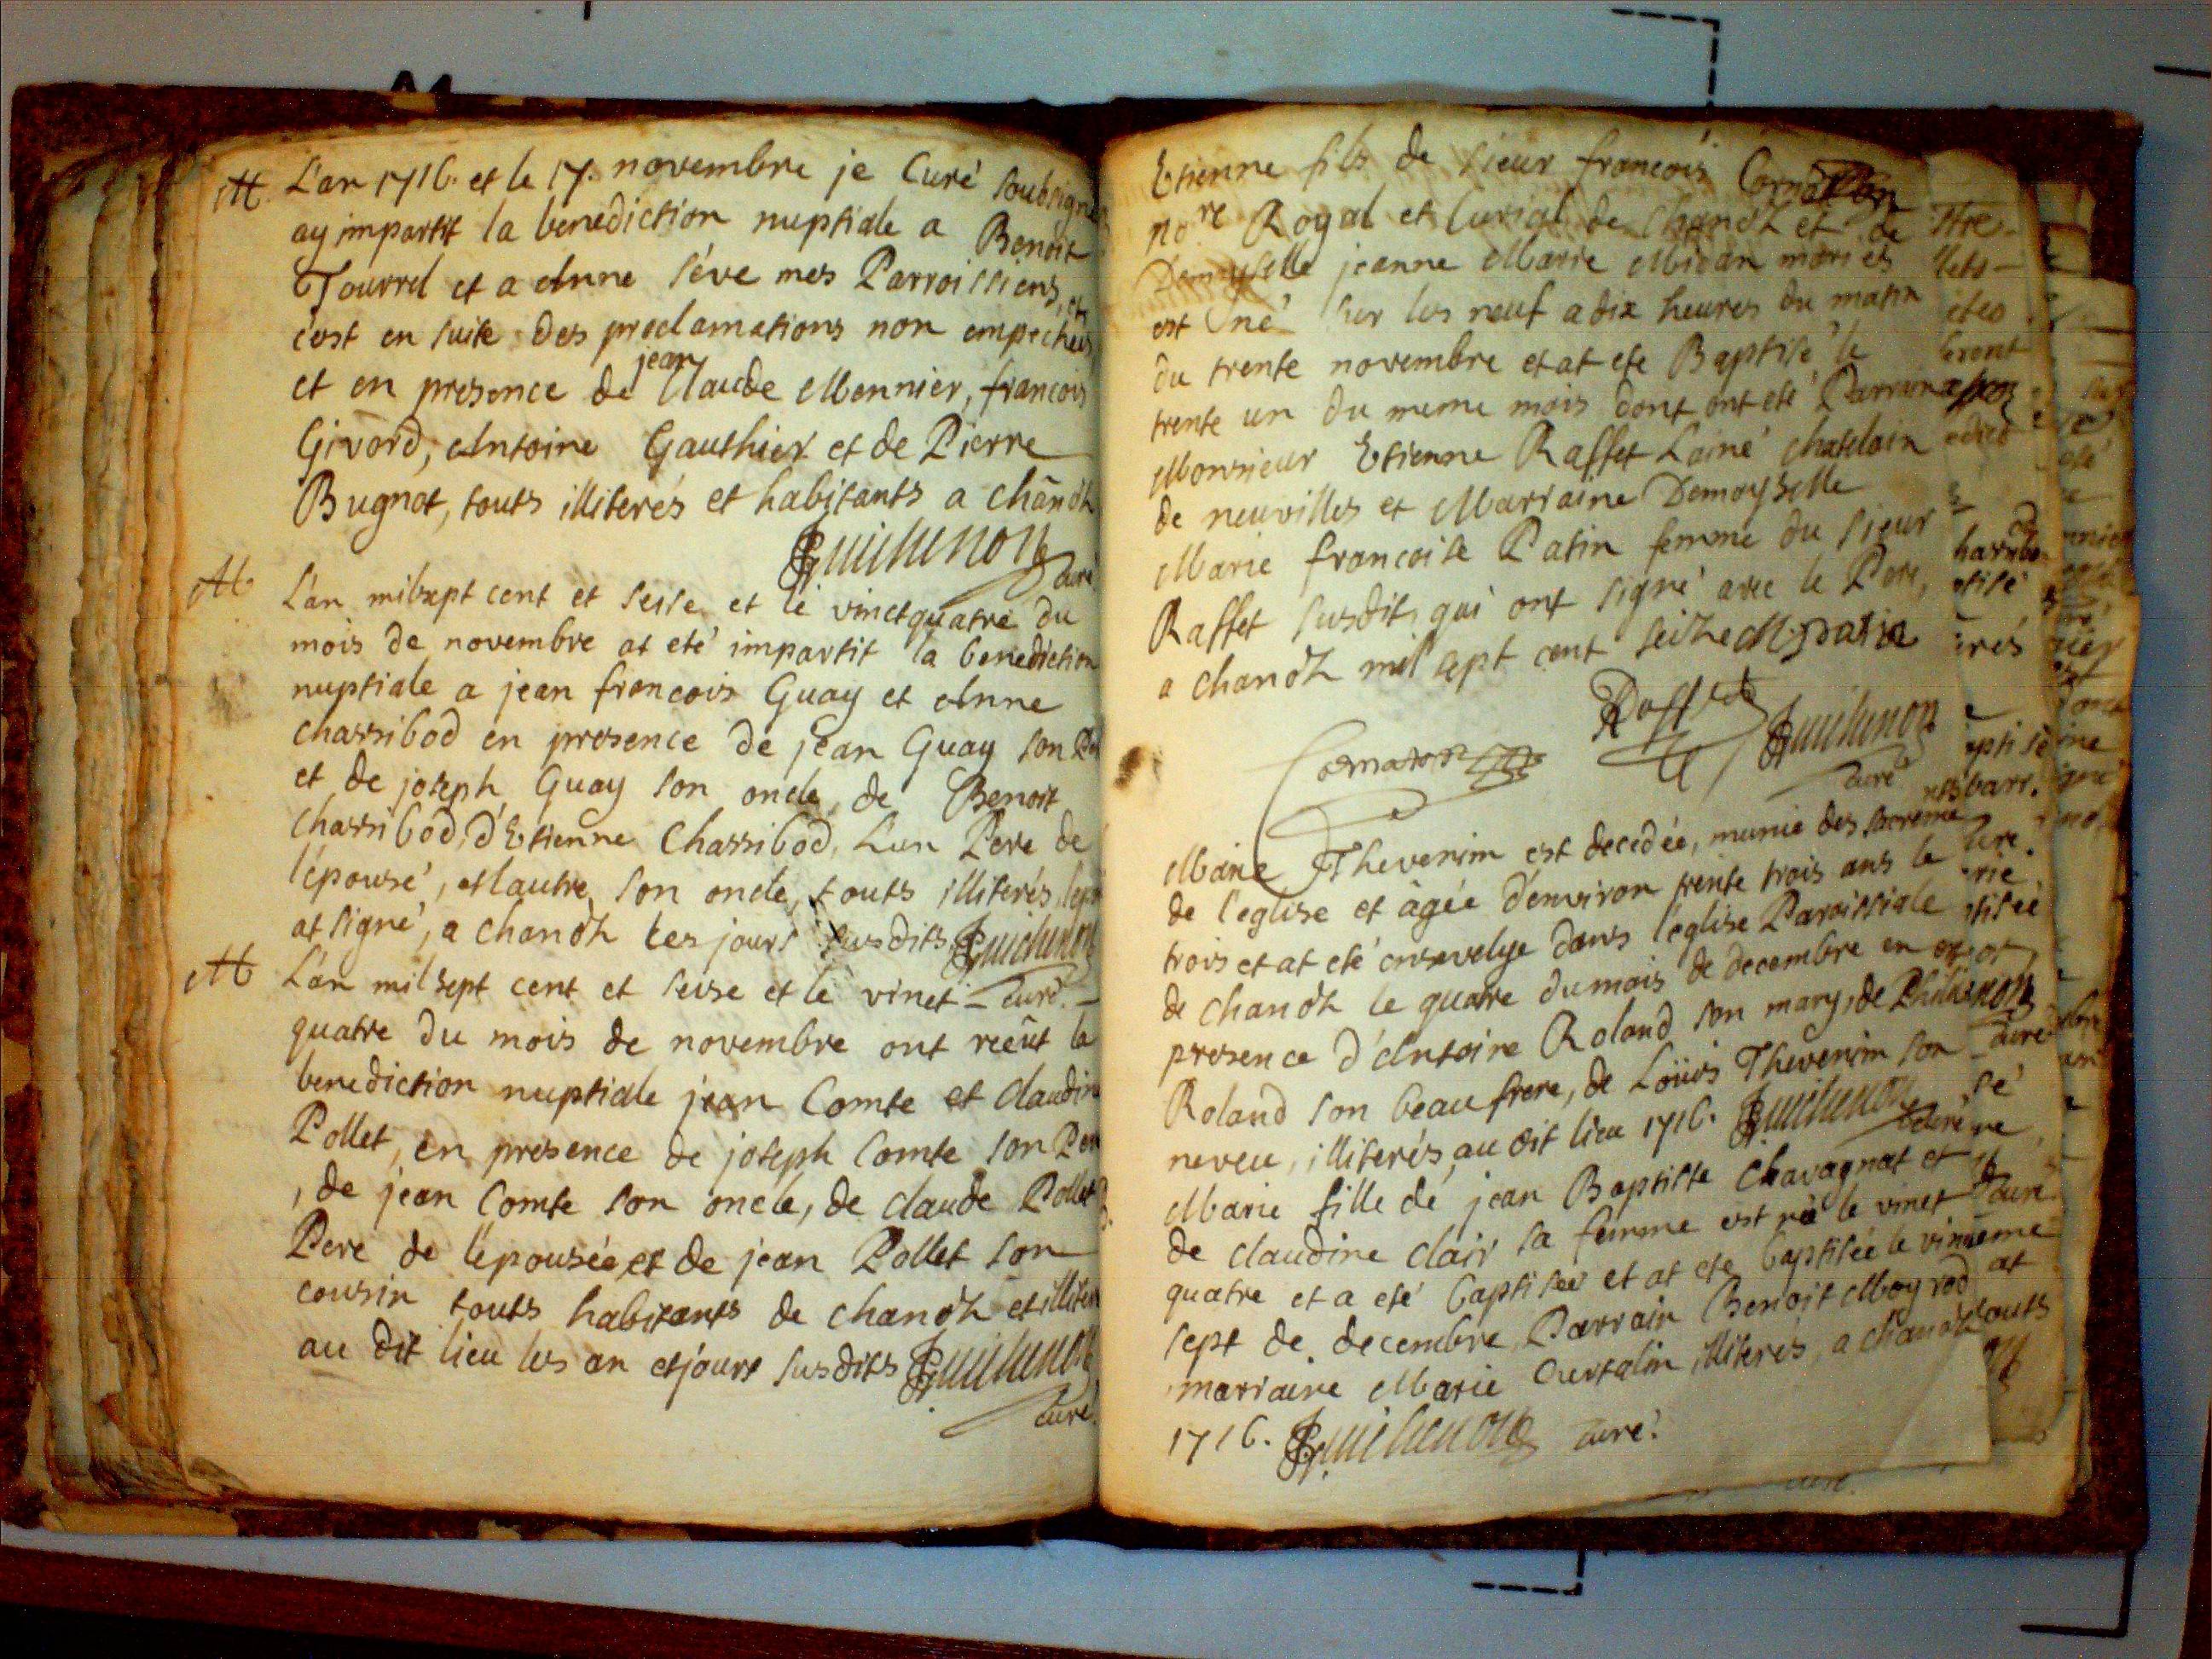 M. L'an 1716. et le 17. novembre je Curé soubsigné
ay impartit la benediction nuptiale a Benoit
Tourrel et a Anne Séve mes Parroissiens, et
c'est en suite des proclamations non empechées
et en presence de jean Claude Monnier, francois
Givord, Antoine Gauthier et de Pierre
Bugnot, touts illiterés et habitants a chanôz
Guichenon curé
M L'an mil sept cent et seise et le vinct quatre du
mois de novembre at eté impartit la benediction
nuptiale a jean francois Guay et Anne
chassibod en presence de jean Guay son Pere
et de joseph Guay son oncle, de Benoit
chassibod, d'Etienne Chassibod, L'un Pere de
l'épousé, et lautre son oncle, touts illiterés,
at signé, a chanoz les jours susdits Guichenon
curé.
M L'an mil sept cent et seise et le vinct
quatre du mois de novembre ont reçût la
benediction nuptiale jean Comte et Claudine
Pollet, en presence de joseph Comte son Pere
, de jean Comte son oncle, de claude Pollet
Pere de l'épousée et de jean Pollet son
cousin touts habitants de chanoz et illiterés
au dit lieu les an et jours susdits Guichenon
curé.
Etienne fils de sieur francois Cornaton
no.re Royal et Curial de Chanoz et de
Demoyselle jeanne Marie Midan mariés
est né sur les neuf a dix heures du matin
du trente novembre et at eté Baptisé le
trente un du meme mois dont ont eté Parrain
Monsieur Etienne Raffet L'ainé chatelain
de neuvilles et Marraine Demoyselle
Marie francoise Patin femme du sieur
Raffet susdit, qui ont signé avec le Pere,
a chanoz mil sept cent seize M. patin
Raffet
Cornaton Guichenon
curé
Marie Thevenim est decedée, munie des sacrements
de l'eglise et âgée d'environ trente trois ans le
trois et at eté ensevelye dans l'eglise Paroissiale
de chanoz le quatre du mois de decembre en
presence d'Antoine Roland son mary, de
Roland son beau frere, de Loüis Thevenim son
neveu, illiterés au dit lieu 1716. Guichenon
curé
Marie fille de jean Baptiste Chavagnat et
de claudine clair sa femme est née le vinct
quatre et a eté baptisée et at eté baptisée le vinct
sept de decembre, Parrain Benoit Moyrod
marraine Marie Curtalin illiterés, a chanoz
1716. Guichenon curé.